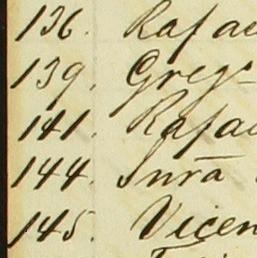 136. Rafae
139. Grego
141. Rafae
144. Sura
145. Vicen